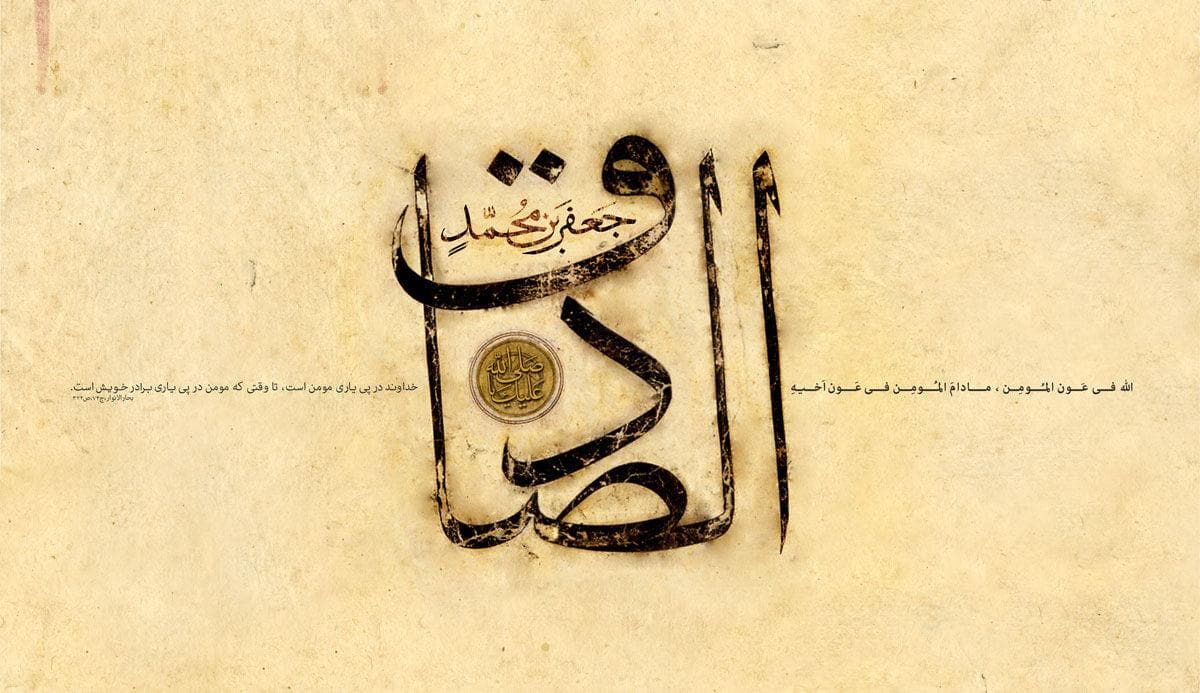 الصادق
جَعفَر بن مُحمَّدٍ
صلی الله
علیک
الله فی عَون المُومِن ، مادامَ المُومِن فی عَون اَخیهِ
خداوند در پی یاری مومن است، تا وقتی که مومن در پی یاری برادر خویش است.
بحارالانوار،ج۷۴،ص۳۲۲